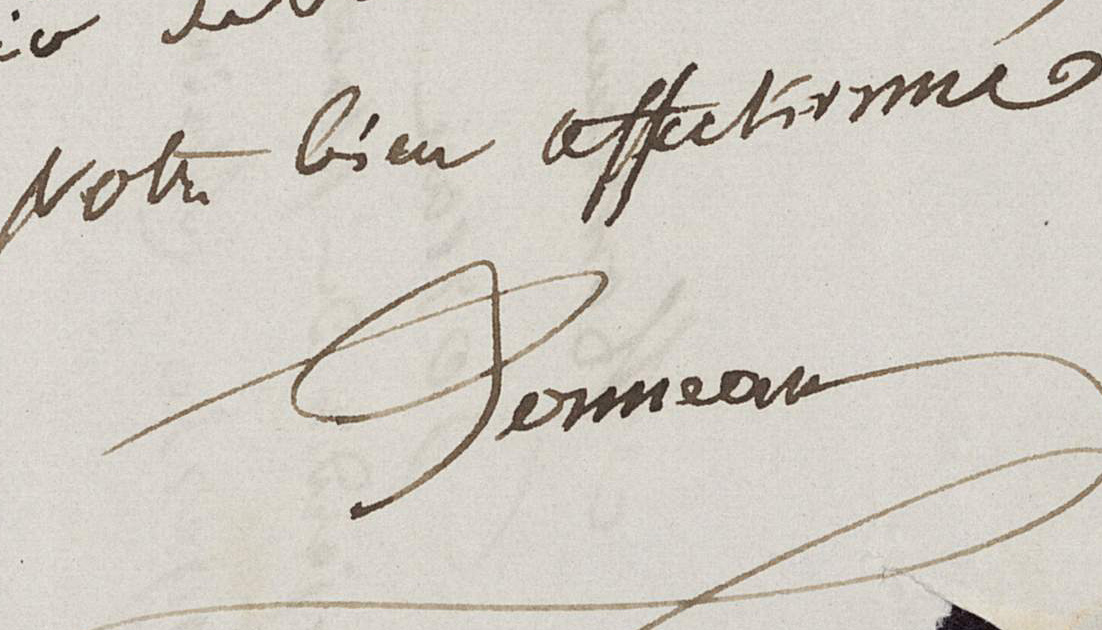 Votre bien affectionné
Jonneau